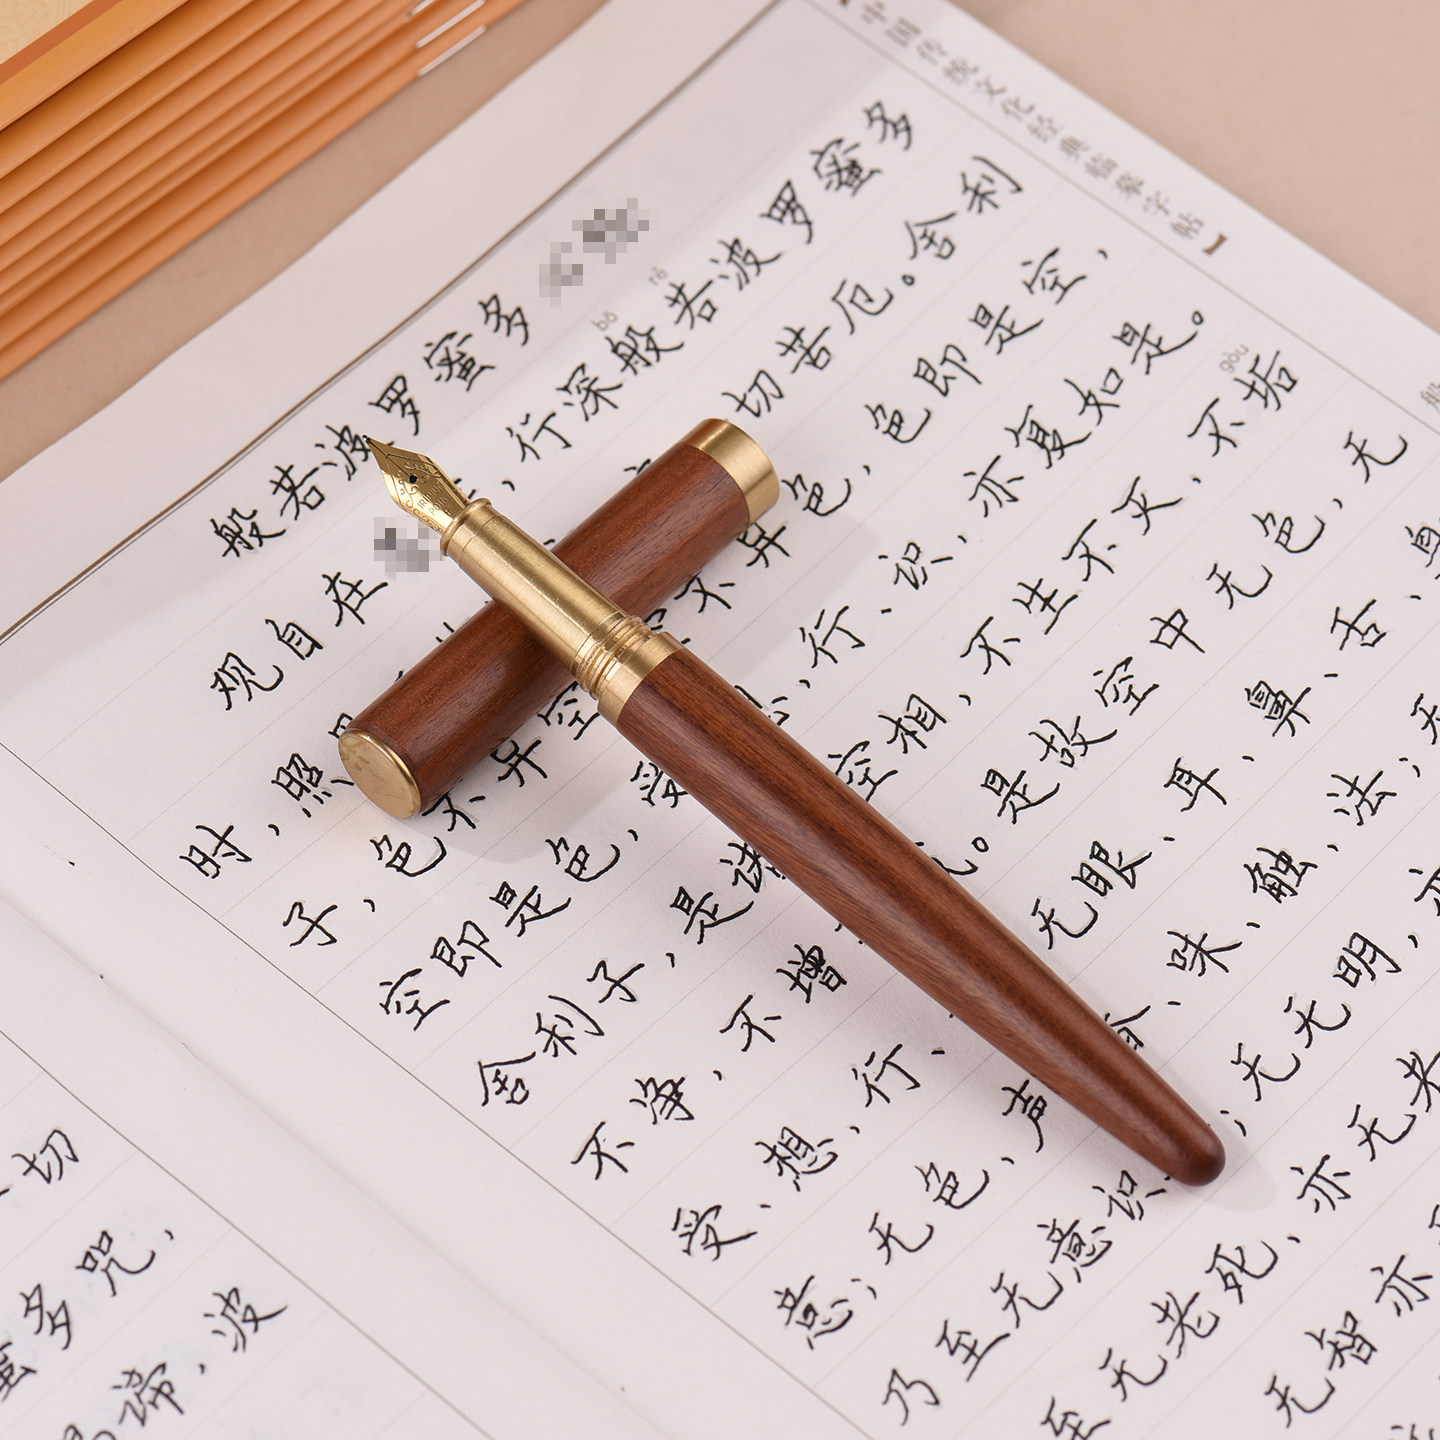 【中国传统文化经典临摹字帖】
般若波罗蜜多
bō rě
观自在，行深般若波罗蜜多
时，照切苦厄。舍利
子，色不异空不异色，色即是空，
空即是色，受、行、识，亦复如是。
gòu
舍利子，是诸空相，不生不灭，不垢
不净，不增。是故空中无色，无
受、想、行、无眼、耳、鼻、舌、身
意；无色、声、味、触、法；无
乃至无意识；无无明，亦
至无老死，亦无老
无智亦
一切
蜜多咒，
谛，波